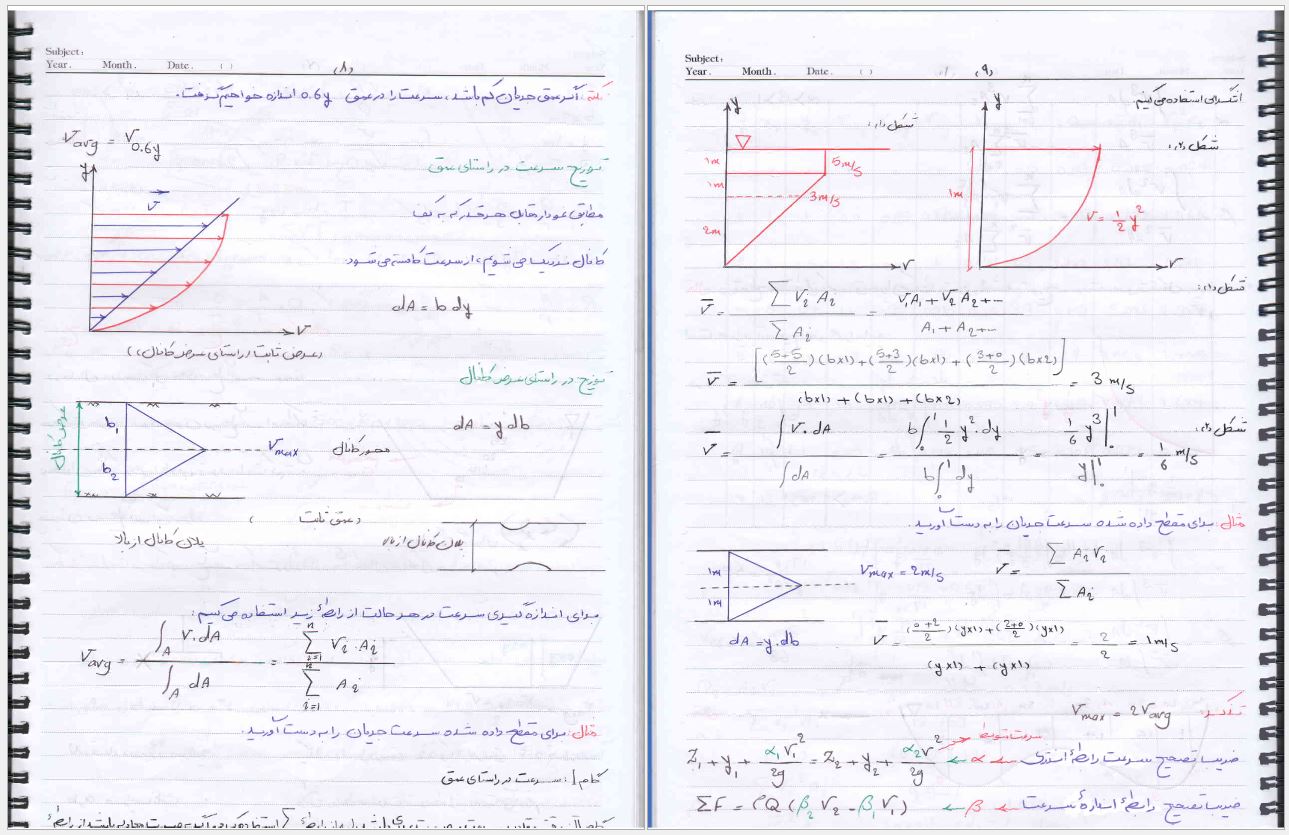 Subject:
Year. Month. Date. ( )
(۸)
نکته: اگر عمق جریان کم باشد، سرعت را در عمق 0.6y اندازه خواهیم گرفت.
Vavg = V0.6y
توزیع سرعت در راستای عمق
y
V
مطابق نمودار مقابل هر قدر که به کف
کانال نزدیک می شویم، از سرعت کاسته می شود
dA = b dy
V
(عرض ثابت در راستای عرض کانال)
توزیع در راستای عرض کانال
عرض کانال
b1
b2
Vmax
محور کانال
dA = y db
(عمق ثابت)
پلان کانال از بالا
پلان کانال از بالا
برای اندازه گیری سرعت در هر حالت از رابطهٔ زیر استفاده می کنیم:
Vavg = ∫A V.dA / ∫A dA = Σ(i=1→n) Vi.Ai / Σ(i=1→n) Ai
مثال: برای مقطع داده شده سرعت جریان را به دست آورید.
گام 1: سرعت در راستای عمق
Subject:
Year. Month. Date. ( )
(۹)
انتگرال استفاده می کنیم.
y
شکل (۱):
1m
1m
2m
5m/s
3m/s
V
y
شکل (۲):
1m
V = 1/2 y²
V
شکل (۱):
V̄ = Σ Vi Ai / Σ Ai = (V1A1 + V2A2 + ...) / (A1 + A2 + ...)
V̄ = [((5+5)/2)(b×1) + ((5+3)/2)(b×1) + ((3+0)/2)(b×2)] / ((b×1) + (b×1) + (b×2)) = 3 m/s
شکل (۲):
V̄ = ∫V.dA / ∫dA = b∫₀¹ 1/2 y².dy / b∫₀¹ dy = 1/6 y³|₀¹ / y|₀¹ = 1/6 m/s
مثال: برای مقطع داده شده سرعت جریان را به دست آورید.
1m
1m
Vmax = 2m/s
V̄ = Σ Ai Vi / Σ Ai
dA = y.db
V̄ = (((0+2)/2)(y×1) + ((2+0)/2)(y×1)) / ((y×1) + (y×1)) = 2/2 = 1m/s
Vmax = 2Vavg
سرعت متوسط
ضریب تصحیح سرعت رابطهٔ انرژی ← α ← Z1 + y1 + α1V1²/2g = Z2 + y2 + α2V²/2g
ضریب تصحیح رابطهٔ اندازهٔ سرعت ← β ← ΣF = ρQ(β2V2 - β1V1)